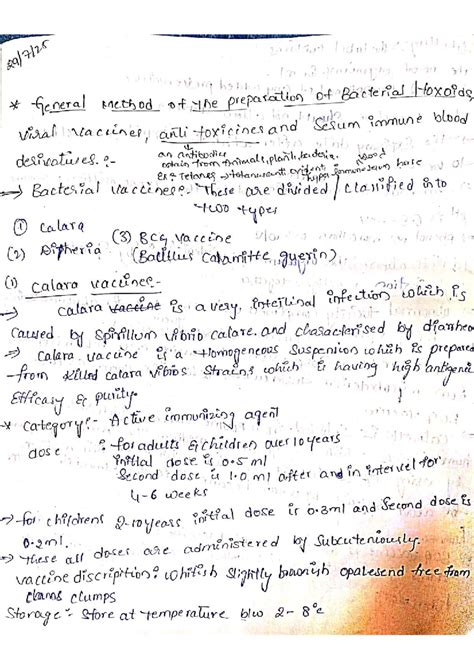 29/7/25
* General Method of the preparation of Bacterial toxoids,
viral vaccines, anti toxicines and Serum immune blood
desivatives :-
an antibodies
obtain from Animals, plant, bacteria.
Ex:- Tetanus → blood
→ Bacterial vaccines:- These are divided / classified into
two types
(1) Calara (3) BCG vaccine
(2) Diptheria (Bacillus Calamitte guerin)
(1) Calara vaccines:-
→ Calara vaccine is a very, intertinal infection which is
Caused by Spirillum vibrio calare. and characterised by diarrhea
→ Calara vaccine is a Homogeneous Suspension which is prepared
from killed calara vibios Strains which is having high antigenic
Efficasy & purity.
* Category:- Active immunizing agent
dose : for adults & children over 10 years
initial dose is 0.5 ml
Second dose is 1.0 ml after and in intervel for
4-6 weeks
→ for childrens 2-10 years initial dose is 0.3ml and Second dose is
0.2ml.
→ These all doses are administered by Subcuteniously.
vaccine discription: whitish slightly brownish opalesend free from
clams clumps
Storage :- Store at temperature b/w 2-8°c